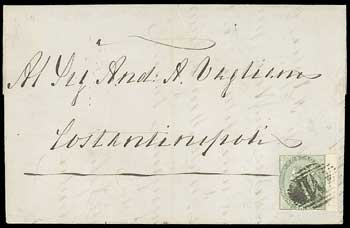 Al Sig And: A. Vagliano
Costantinopoli